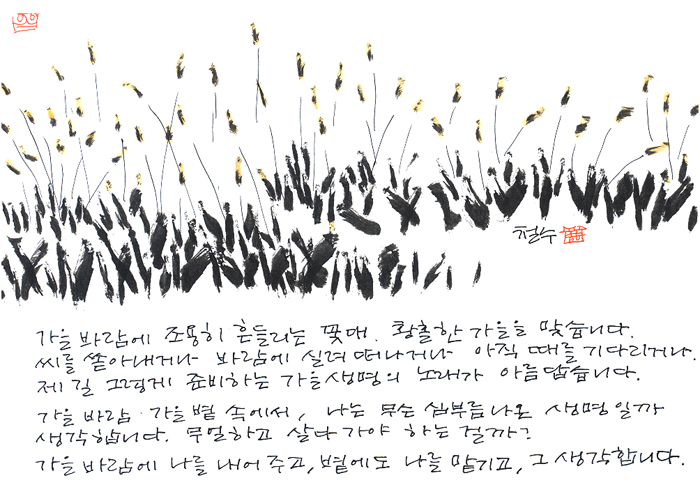 철수
가을 바람에 조용히 흔들리는 꽃대. 황홀한 가을을 맞습니다.
씨를 쏟아내거나 바람에 실려 떠나거나 아직 때를 기다리거나.
제 길 그렇게 준비하는 가을 생명의 노래가 아름답습니다.
가을 바람·가을 볕 속에서, 나는 무슨 심부름 나온 생명일까
생각합니다. 무얼하고 살다 가야 하는 걸까?
가을 바람에 나를 내어 주고, 볕에도 나를 맡기고, 그 생각합니다.